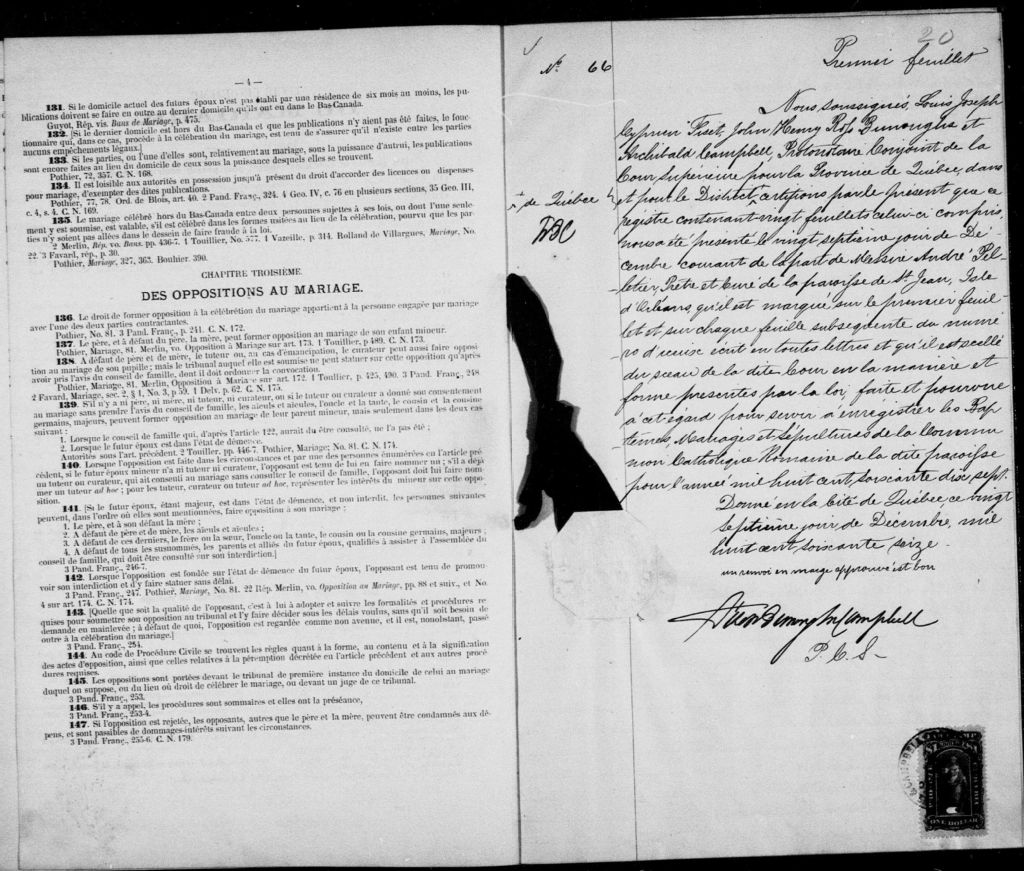 — 4 —
131. Si le domicile actuel des futurs époux n'est pas établi par une résidence de six mois au moins, les pu-
blications doivent se faire en outre au dernier domicile qu'ils ont eu dans le Bas-Canada.
Guyot, Rép. vis. Bans de Mariage, p. 475.
132. [Si le dernier domicile est hors du Bas-Canada et que les publications n'y aient pas été faites, le fonc-
tionnaire qui, dans ce cas, procède à la célébration du mariage, est tenu de s'assurer qu'il n'existe entre les parties
aucuns empêchements légaux.]
133. Si les parties, ou l'une d'elles sont, relativement au mariage, sous la puissance d'autrui, les publications
sont encore faites au lieu du domicile de ceux sous la puissance desquels elles se trouvent.
Pothier, 72, 357. C. N. 168.
134. Il est loisible aux autorités en possession jusqu'à présent du droit d'accorder des licences ou dispenses
pour mariage, d'exempter des dites publications.
Pothier, 77, 78. Ord. de Blois, art. 40. 2 Pand. Franç., 324. 4 Geo. IV, c. 76 en plusieurs sections, 35 Geo. III,
c. 4, s. 4. C. N. 169.
135. Le mariage célébré hors du Bas-Canada entre deux personnes sujettes à ses lois, ou dont l'une seule-
ment y est soumise, est valable, s'il est célébré dans les formes usitées au lieu de la célébration, pourvu que les par-
ties n'y soient pas allées dans le dessein de faire fraude à la loi.
2 Merlin, Rép. vo. Bans. pp. 436-7. 1 Touillier, No. 577. 1 Vazeille, p. 314. Rolland de Villargues, Mariage, No.
22. 3 Favard, rép., p. 30.
Pothier, Mariage, 327, 363. Bouhier. 390.
CHAPITRE TROISIEME.
DES OPPOSITIONS AU MARIAGE.
136. Le droit de former opposition à la célébration du mariage appartient à la personne engagée par mariage
avec l'une des deux parties contractantes.
Pothier, No. 81. 3 Pand. Franç., p. 241. C. N. 172.
137. Le père, et à défaut du père, la mère, peut former opposition au mariage de son enfant mineur.
Pothier, Mariage, 81. Merlin, vo. Opposition à Mariage sur art. 173. 1 Touillier, p 489. C. N. 173.
138. A défaut de père et de mère, le tuteur ou, au cas d'émancipation, le curateur peut aussi faire opposi-
tion au mariage de son pupille; mais le tribunal auquel elle est soumise ne peut statuer sur cette opposition qu'après
avoir pris l'avis du conseil de famille, dont il doit ordonner la convocation.
Pothier, Mariage, 81. Merlin, Opposition à Mariage sur art. 172. 1 Toullier, p. 425, 490. 3 Pand. Franç., 248
2 Favard, Mariage, sec. 2, § 1, No. 3, p 59. 1 Delv. p. 62. C. N. 175.
139. S'il n'y a ni père, ni mère, ni tuteur, ni curateur, ou si le tuteur ou curateur a donné son consentement
au mariage sans prendre l'avis du conseil de famille, les aïeuls et aïeules, l'oncle et la tante, le cousin et la cousine
germains, majeurs, peuvent former opposition au mariage de leur parent mineur, mais seulement dans les deux cas
suivant :
1. Lorsque le conseil de famille qui, d'après l'article 122, aurait du être consulté, ne l'a pas été ;
2. Lorsque le futur époux est dans l'état de démence.
Autorités sous l'art. précédent. 2 Touiller, pp. 446-7. Pothier, Mariage; No. 81. C. N. 174.
140. Lorsque l'opposition est faite dans les circonstances et par une des personnes énumérées en l'article pré-
cédent, si le futur époux mineur n'a ni tuteur ni curateur, l'opposant est tenu de lui en faire nommer un ; s'il a déjà
un tuteur ou curateur, qui ait consenti au mariage sans consulter le conseil de famille, l'opposant doit lui faire nom-
mer un tuteur ad hoc ; pour les tuteur, curateur ou tuteur ad hoc, représenter les intérêts du mineur sur cette oppo-
sition.
141. [Si le futur époux, étant majeur, est dans l'état de démence, et non interdit, les personnes suivantes
peuvent, dans l'ordre où elles sont mentionnées, faire opposition à son mariage :
1. Le père, et à son défaut la mère ;
2. A défaut de père et de mère, les aïeuls et aïeules ;
3. A défaut de ces derniers, le frère ou la sœur, l'oncle ou la tante, le cousin ou la cousine germains, majeurs ;
4. A défaut de tous les susnommés, les parents et alliés du futur époux, qualifiés à assister à l'assemblée du
conseil de famille, qui doit être consulté sur son interdiction.]
3 Pand. Franç., 246-7.
142. Lorsque l'opposition est fondée sur l'état de démence du futur époux, l'opposant est tenu de promou-
voir son interdiction et d'y faire statuer sans délai.
3 Pand. Franç., 247. Pothier, Mariage, No. 81. 22 Rép. Merlin, vo. Opposition au Mariage, pp. 88 et suiv., et No.
4 sur art. 174. C. N. 174.
143. [Quelque que soit la qualité de l'opposant, c'est à lui à adopter et suivre les formalités et procédures re
quises pour soumettre son opposition au tribunal et l'y faire décider sous les délais voulus, sans qu'il soit besoin de
demande en mainlevée ; à défaut de quoi, l'opposition est regardée comme non avenue, et il est, nonobstant, passé
outre à la célébration du mariage.]
3 Pand. Franç., 254.
144. Au code de Procédure Civile se trouvent les règles quant à la forme, au contenu et à la signification
des actes d'opposition, ainsi que celles relatives à la péremption décrétée en l'article précédent et aux autres procé
dures requises.
145. Les oppositions sont portées devant le tribunal de première instance du domicile de celui au mariage
duquel on s'oppose, ou du lieu où droit de célébrer le mariage, ou devant un juge de ce tribunal.
3 Pand. Franç., 253.
146. S'il y a appel, les procédures sont sommaires et elles ont la préséance,
3 Pand. Franç., 253-4.
147. Si l'opposition est rejetée, les opposants, autres que le père et la mère, peuvent être condamnés aux dé-
pens, et sont passibles de dommages-intérêts suivant les circonstances.
3 Pand. Franç., 255-6. C. N. 179.
20
No 66
Premier feuillet
Nous soussignés, Louis Joseph
Cyprien Fiset, John Henry Ross Burroughs et
Archibald Campbell, Protonotaire Conjoint de la
Cour Supérieure pour la Province de Québec, dans
de Québec
et pour le District, certifions par le présent que ce
registre contenant vingt feuillets celui-ci compris,
FBC
nous a été présenté le vingt septième jour de Dé
cembre courant de la part de Messire André Pel-
letier, Prêtre et Curé de la paroisse de St. Jean, Isle
d'Orléans qu'il est marqué sur le premier feuil-
let et sur chaque feuille subsequente du numé
ro d'iceux écrit en toutes lettres et qu'il est scellé
du sceau de la dite Cour en la manière et
forme presentes par la loi, faite et pourvue
à cet égard pour servir à enregistrer les Bap
temes, Mariages et Sépultures de la Commu
nion Catholique Romaine de la dite paroisse
pour l'année mil huit cent, soixante dix sept.
Donné en la Cité de Québec ce vingt
septieme jour de Décembre, mil
huit cent soixante seize.
un renvoi en marge approuvé est bon
Fiset Burroughs Campbell
P. C. S-
ONE DOLLAR